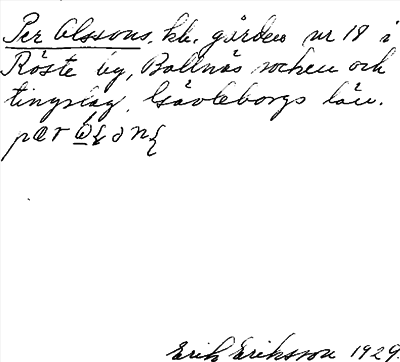 Per Olssons, hb. gården nr 18 i
Röste by, Bollnäs socken och
tingslag, Gävleborgs län.
Erik Eriksson 1929.